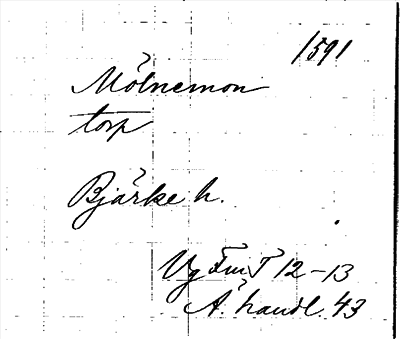 1591
Mölnemon
torp
Bjärke h.
Vg FmT 12-13
A. handl. 43